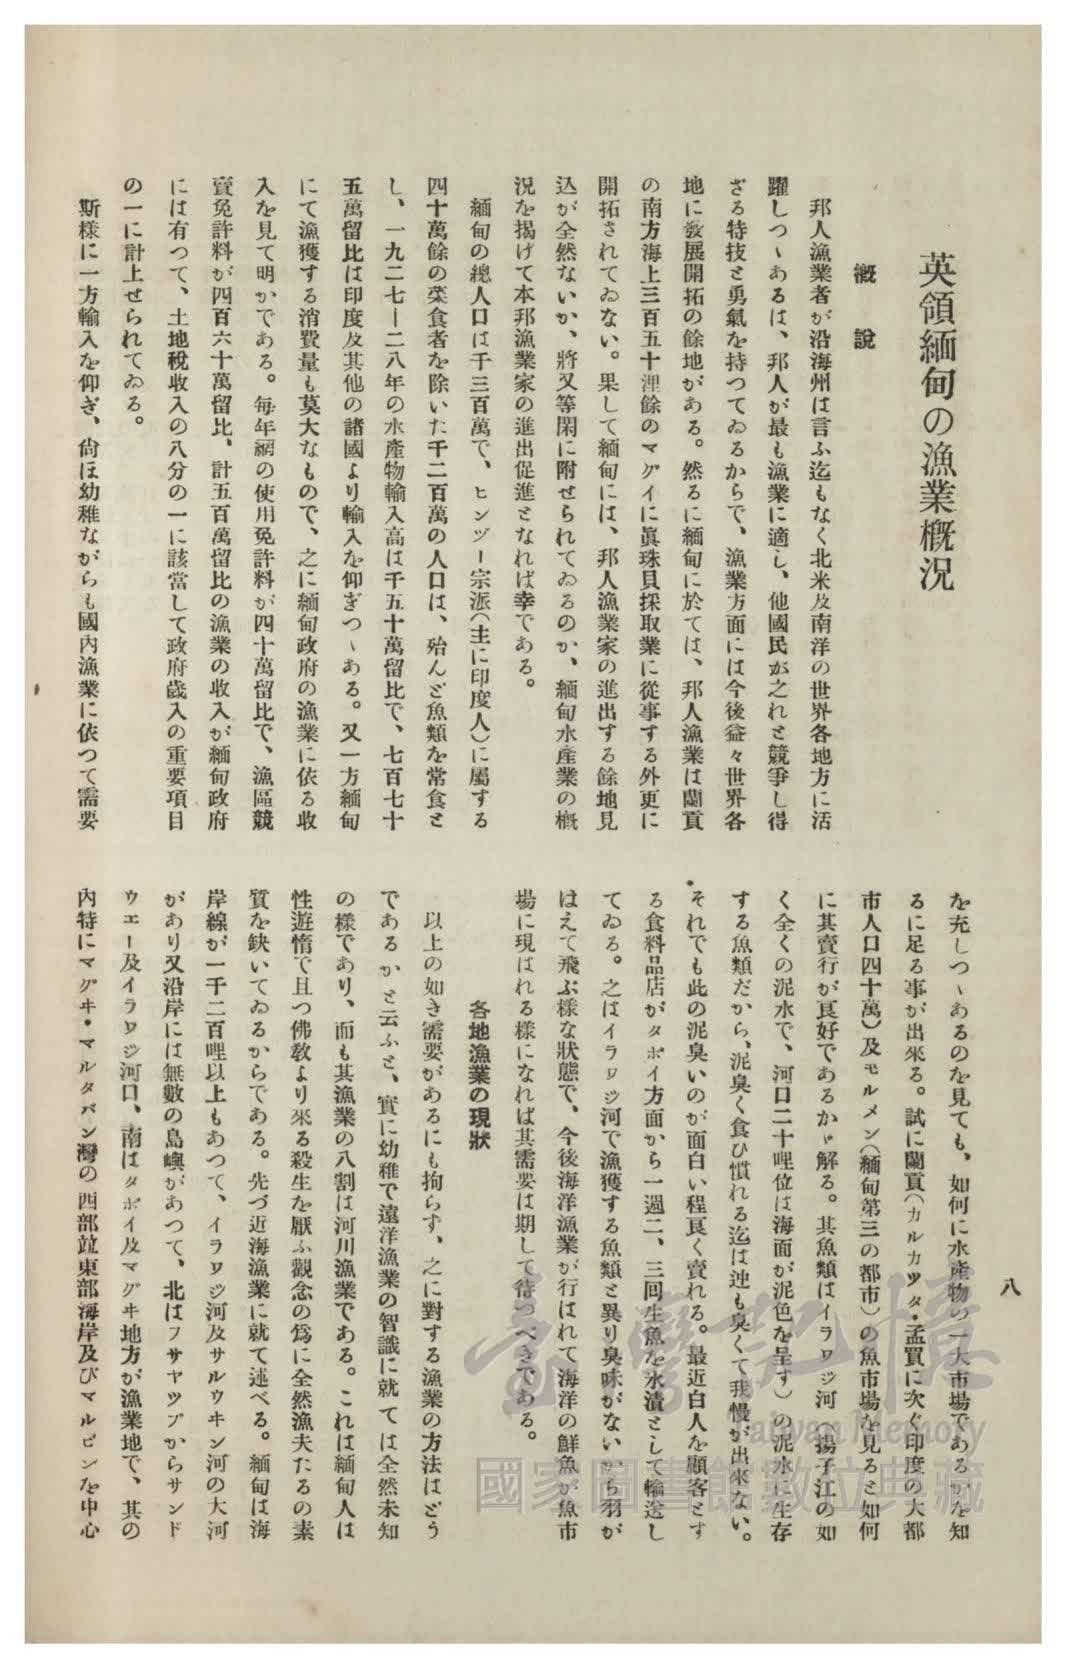 英領緬甸の漁業概況
概說
邦人漁業者が沿海州は言ふ迄もなく北米及南洋の世界各地方に活
躍しつゝあるは、邦人が最も漁業に適し、他國民が之れと競爭し得
ざる特技と勇氣を持つてゐるからで、漁業方面には今後益々世界各
地に發展開拓の餘地がある。然るに緬甸に於ては、邦人漁業は蘭貢
の南方海上三百五十浬餘のマグイに眞珠貝採取業に從事する外更に
開拓されてゐない。果して緬甸には、邦人漁業家の進出する餘地見
込が全然ないか、將又等閑に附せられてゐるのか、緬甸水產業の概
況を揭げて本邦漁業家の進出促進となれば幸である。
緬甸の總人口は千三百萬で、ヒンヅー宗派(主に印度人)に屬する
四十萬餘の菜食者を除いた千二百萬の人口は、殆んど魚類を常食と
し、一九二七ー二八年の水產物輸入高は千五十萬留比で、七百七十
五萬留比は印度及其他の諸國より輸入を仰ぎつゝある。又一方緬甸
にて漁獲する消費量も莫大なもので、之に緬甸政府の漁業に依る收
入を見て明かである。每年網の使用免許料が四十萬留比で、漁區競
賣免許料が四百六十萬留比、計五百萬留比の漁業の收入が緬甸政府
には有つて、土地稅收入の八分の一に該當して政府歲入の重要項目
の一に計上せられてゐる。
斯樣に一方輸入を仰ぎ、尙ほ幼稚ながらも國內漁業に依つて需要
八
を充しつゝあるのを見ても、如何に水產物の一大市場であるかを知
るに足る事が出來る。試に蘭貢(カルカツタ・孟買に次ぐ印度の大都
市人口四十萬)及モルメン(緬甸第三の都市)の魚市場を見ると如何
に其賣行が良好であるかゞ解る。其魚類はイラワジ河(揚子江の如
く全くの泥水で、河口二十哩位は海面が泥色を呈す)の泥水に生存
する魚類だから、泥臭く食ひ慣れる迄は迚も臭くて我慢が出來ない。
それでも此の泥臭いのが面白い程良く賣れる。最近白人を顧客とす
る食料品店がタボイ方面から一週二、三回生魚を氷漬として輸送し
てゐる。之はイラワジ河で漁獲する魚類と異り臭味がないから羽が
はえて飛ぶ樣な狀態で、今後海洋漁業が行はれて海洋の鮮魚が魚市
場に現はれる樣になれば其需要は期して待つべきである。
各地漁業の現狀
以上の如き需要があるにも拘らず、之に對する漁業の方法はどう
であるかと云ふと、實に幼稚で遠洋漁業の智識に就ては全然未知
の樣であり、而も其漁業の八割は河川漁業である。これは緬甸人は
性遊惰で且つ佛敎より來る殺生を厭ふ觀念の爲に全然漁夫たるの素
質を缺いてゐるからである。先づ近海漁業に就て述べる。緬甸は海
岸線が一千二百哩以上もあつて、イラワジ河及サルウヰン河の大河
があり又沿岸には無數の島嶼があつて、北はフサヤツプからサンド
ウエー及イラワジ河口、南はタボイ及マグヰ地方が漁業地で、其の
內特にマグヰ・マルタバン灣の西部竝東部海岸及びマルビンを中心
臺灣記憶
Taiwan Memory
國家圖書館數位典藏